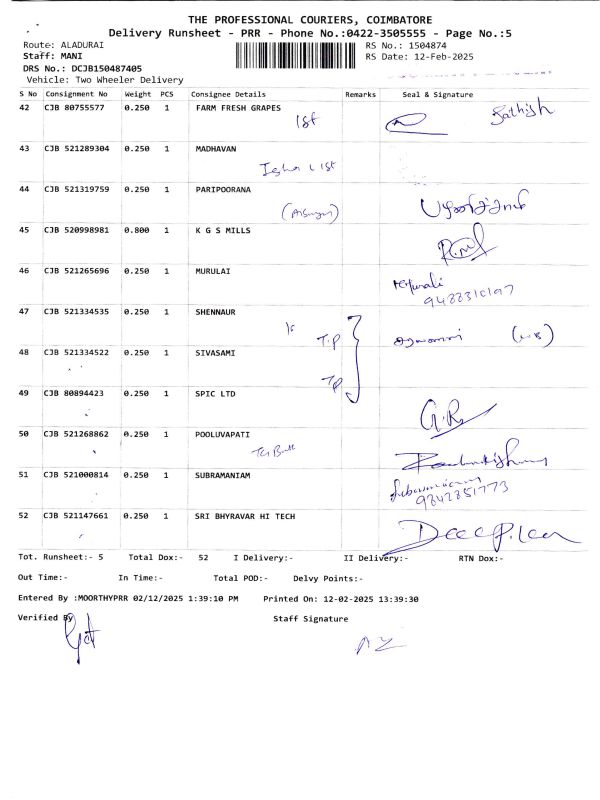 THE PROFESSIONAL COURIERS, COIMBATORE
Delivery Runsheet - PRR - Phone No.:0422-3505555 - Page No.:5
Route: ALADURAI RS No.: 1504874
Staff: MANI RS Date: 12-Feb-2025
DRS No.: DCJB150487405
Vehicle: Two Wheeler Delivery
S No Consignment No Weight PCS Consignee Details Remarks Seal & Signature
42 CJB 80755577 0.250 1 FARM FRESH GRAPES
Ist Sathish
43 CJB 521289304 0.250 1 MADHAVAN
List
44 CJB 521319759 0.250 1 PARIPOORANA
45 CJB 520998981 0.800 1 K G S MILLS
46 CJB 521265696 0.250 1 MURULAI
Murali
47 CJB 521334535 0.250 1 SHENNAUR
T.P
48 CJB 521334522 0.250 1 SIVASAMI
TP
49 CJB 80894423 0.250 1 SPIC LTD
G.R
50 CJB 521268862 0.250 1 POOLUVAPATI
51 CJB 521000814 0.250 1 SUBRAMANIAM
Subramaniam
9842851773
52 CJB 521147661 0.250 1 SRI BHYRAVAR HI TECH
Tot. Runsheet:- 5 Total Dox:- 52 I Delivery:- II Delivery:- RTN Dox:-
Out Time:- In Time:- Total POD:- Delvy Points:-
Entered By :MOORTHYPRR 02/12/2025 1:39:10 PM Printed On: 12-02-2025 13:39:30
Verified By Staff Signature